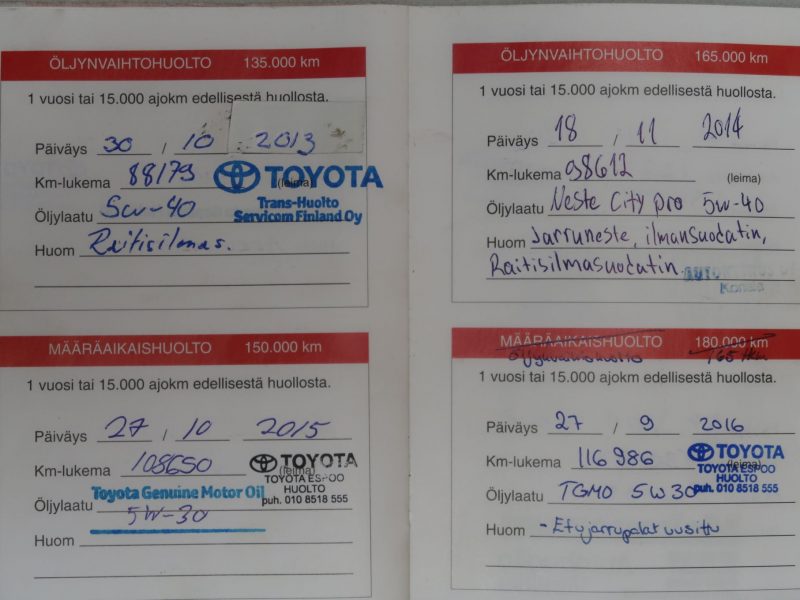 ÖLJYNVAIHTOHUOLTO 135.000 km
1 vuosi tai 15.000 ajokm edellisestä huollosta.
Päiväys 30 / 10 2013
Km-lukema 88179 (leima)
TOYOTA
Trans-Huolto
Servicom Finland Oy
Öljylaatu 5W-40
Huom Raitisilmas.
MÄÄRÄAIKAISHUOLTO 150.000 km
1 vuosi tai 15.000 ajokm edellisestä huollosta.
Päiväys 27 / 10 2015
Km-lukema 108650 (leima)
TOYOTA
TOYOTA ESPOO
HUOLTO
puh. 010 8518 555
Toyota Genuine Motor Oil
Öljylaatu 5W-30
Huom
ÖLJYNVAIHTOHUOLTO 165.000 km
1 vuosi tai 15.000 ajokm edellisestä huollosta.
Päiväys 18 / 11 2014
Km-lukema 98612 (leima)
Öljylaatu Neste City pro 5w-40
Huom Jarruneste, ilmansuodatin,
Raitisilmasuodatin
MÄÄRÄAIKAISHUOLTO 180.000 km
Öljynvaihtohuolto 165 tkm
1 vuosi tai 15.000 ajokm edellisestä huollosta.
Päiväys 27 / 9 2016
Km-lukema 116986 (leima)
TOYOTA
TOYOTA ESPOO
HUOLTO
puh. 010 8518 555
Öljylaatu TGMO 5W30
Huom - Etujarrupalat uusittu